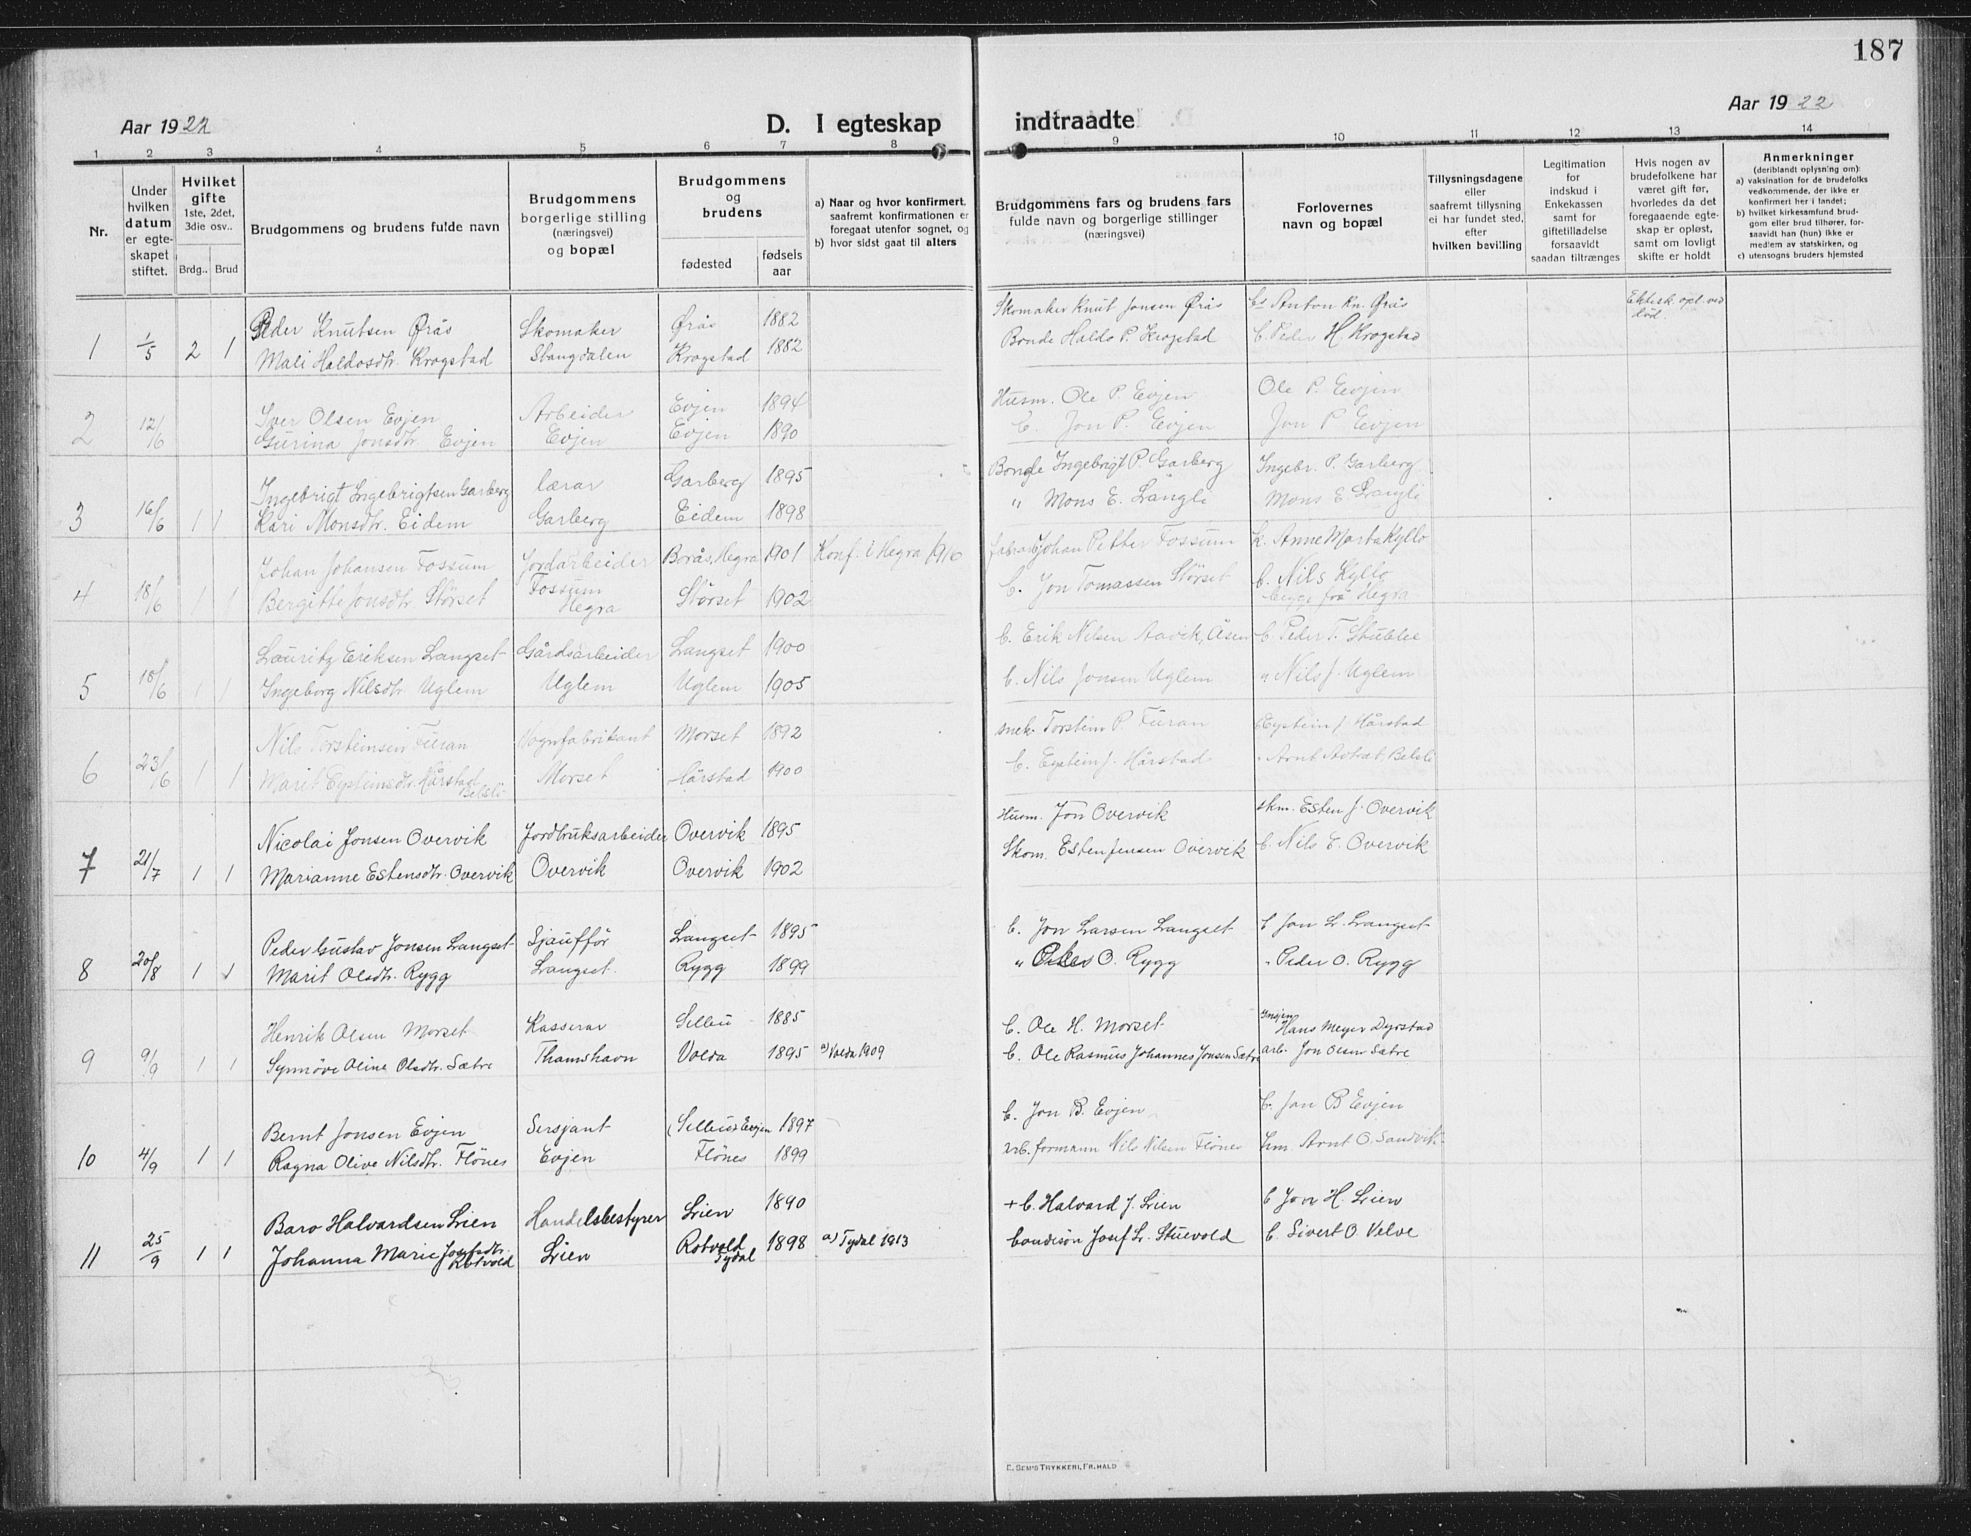 187
Aar 1922
D. I egteskap indtraadte
Aar 1922
1 2 3 4 5 6 7 8 9 10 11 12 13 14
Nr.
Under hvilken datum er egteskapet stiftet.
Hvilket gifte 1ste, 2det, 3die osv..
Brdg.. Brud
Brudgommens og brudens fulde navn
Brudgommens borgerlige stilling (næringsvei) og bopæl
Brudgommens og brudens
fødested
fødsels aar
a) Naar og hvor konfirmert, saafremt konfirmationen er foregaat utenfor sognet, og
b) hvor sidst gaat til alters
Brudgommens fars og brudens fars fulde navn og borgerlige stillinger (næringsvei)
Forlovernes navn og bopæl
Tillysningsdagene eller saafremt tillysning ei har fundet sted, efter hvilken bevilling
Legitimation for indskud i Enkekassen samt for giftetilladelse forsaavidt saadan tiltrænges
Hvis nogen av brudefolkene har været gift før, hvorledes da det foregaaende egteskap er opløst, samt om lovligt skifte er holdt
Anmerkninger (deriblandt oplysning om):
a) vaksination for de brudefolks vedkommende, der ikke er konfirmert her i landet;
b) hvilket kirkesamfund brudgom eller brud tilhører, forsaavidt han (hun) ikke er medlem av statskirken, og
c) utensogns bruders hjemsted
Peder Knutsen Øräs Skomaker Øräs 1882 Skomaker Knut Jonsen Øräs Anton Kn. Øräs
1 1/5 2 1 Mali Haldosdtr. Krogstad Stangdalen Krogstad 1882 Bonde Haldo P. Krogstad G. Peder H. Krogstad
Ektesk. opl. ved död.
Iver Olsen Evjen Arbeider Evjen 1894 Husm. Ole P. Evjen Ole P. Evjen
2 12/6 Gurina Jonsdtr. Evjen Evjen Evjen 1890 G. Jon P. Evjen Jon P Evjen
Ingebrigt Ingebrigtsen Garberg lærar Garberg 1895 Bonde Ingebrigt P. Garberg Ingebr. P. Garberg
3 16/6 1 1 Kari Monsdtr. Eidem Garberg Eidem 1898 " Mons E. Langli Mons E Langli
Johan Johansen Fossum Jordarbeider Borås, Hegra 1901 Konf. i Hegra 1916 Johan Petter Fossum k. Anne Marta Kyllo
4 18/6 1 1 Bergitte Jonsdtr Störset Fossum Hegra Störset 1902 G. Jon Tomassen Störset G. Nils Kyllo
begge frå Hegra
Lauritz Eriksen Langset Gårdsarbeider Langset 1900 G. Erik Nilsen Aavik, Åsen G. Peder T. Stubbe
5 18/6 1 1 Ingeborg Nilsdtr Uglem Uglem Uglem 1905 G. Nils Jonsen Uglem " Nils J. Uglem
Nils Torsteinsen Furan Vognfabrikant Morset 1892 snek. Torstein P. Furan Eystein J. Hårstad
6 23/6 1 1 Marit Eysteinsdtr. Hårstad Belsli Morset Hårstad 1900 G. Eystein J. Hårstad
Nicolai Jonsen Overvik Jordbruksarbeider Overvik 1895 Husm. Jon Overvik skm. Esten J. Overvik
7 21/7 1 1 Marianne Estensdtr. Overvik Overvik Overvik 1902 Skom. Esten Jensen Overvik G. Nils E. Overvik
Peder Gustav Jonsen Langset Sjauffør Langset 1895 G. Jon Larsen Langset G Jon L. Langset
8 20/8 1 1 Marit Olsdtr. Rygg Langset Rygg 1899 " O. Rygg " Peder O. Rygg
Henrik Olsen Morset Kasserar Selbu 1885 G. Ole H. Morset Hans Meyer Dyrstad
9 9/9 1 1 Synnöve Oline Olsdtr. Sætre Thamshavn Volda 1895 a) Volda 1909 G. Ole Rasmus Johannes Jonsen Sætre arb. Jon Olsen Sætre
Bernt Jonsen Evjen Sersjant Selbu Evjen 1897 G. Jon B. Evjen G. Jon B Evjen
10 4/9 1 1 Ragna Olive Nilsdtr. Flönes Evjen Flönes 1899 arb. formann Nils Nilsen Flönes hm. Arnt O. Sandvik
Baro Halvardsen Lien Handelsbestyrer Lien 1890 + G. Halvard J. Lien G Jon H. Lien
11 25/9 1 1 Johanna Marie Josefsdtr. Rotvold Lien Rotvold Tydal 1898 a) Tydal 1913 Josef L. Stuevold G. Sivert O. Velve
E. SEM'S TRYKKERI, FR.HALD